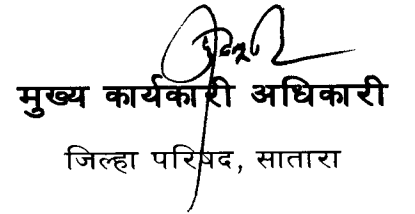 मुख्य कार्यकारी अधिकारी
जिल्हा परिषद, सातारा